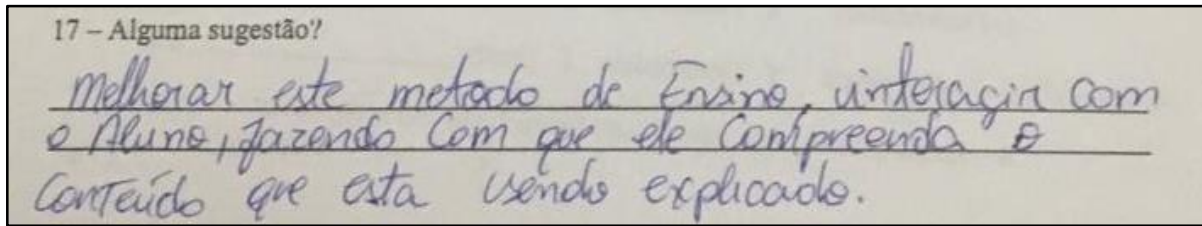 17 – Alguma sugestão?
Melhorar este metodo de Ensino, interagir com
o Aluno, fazendo Com que ele Compreenda o
Conteúdo que esta sendo explicado.